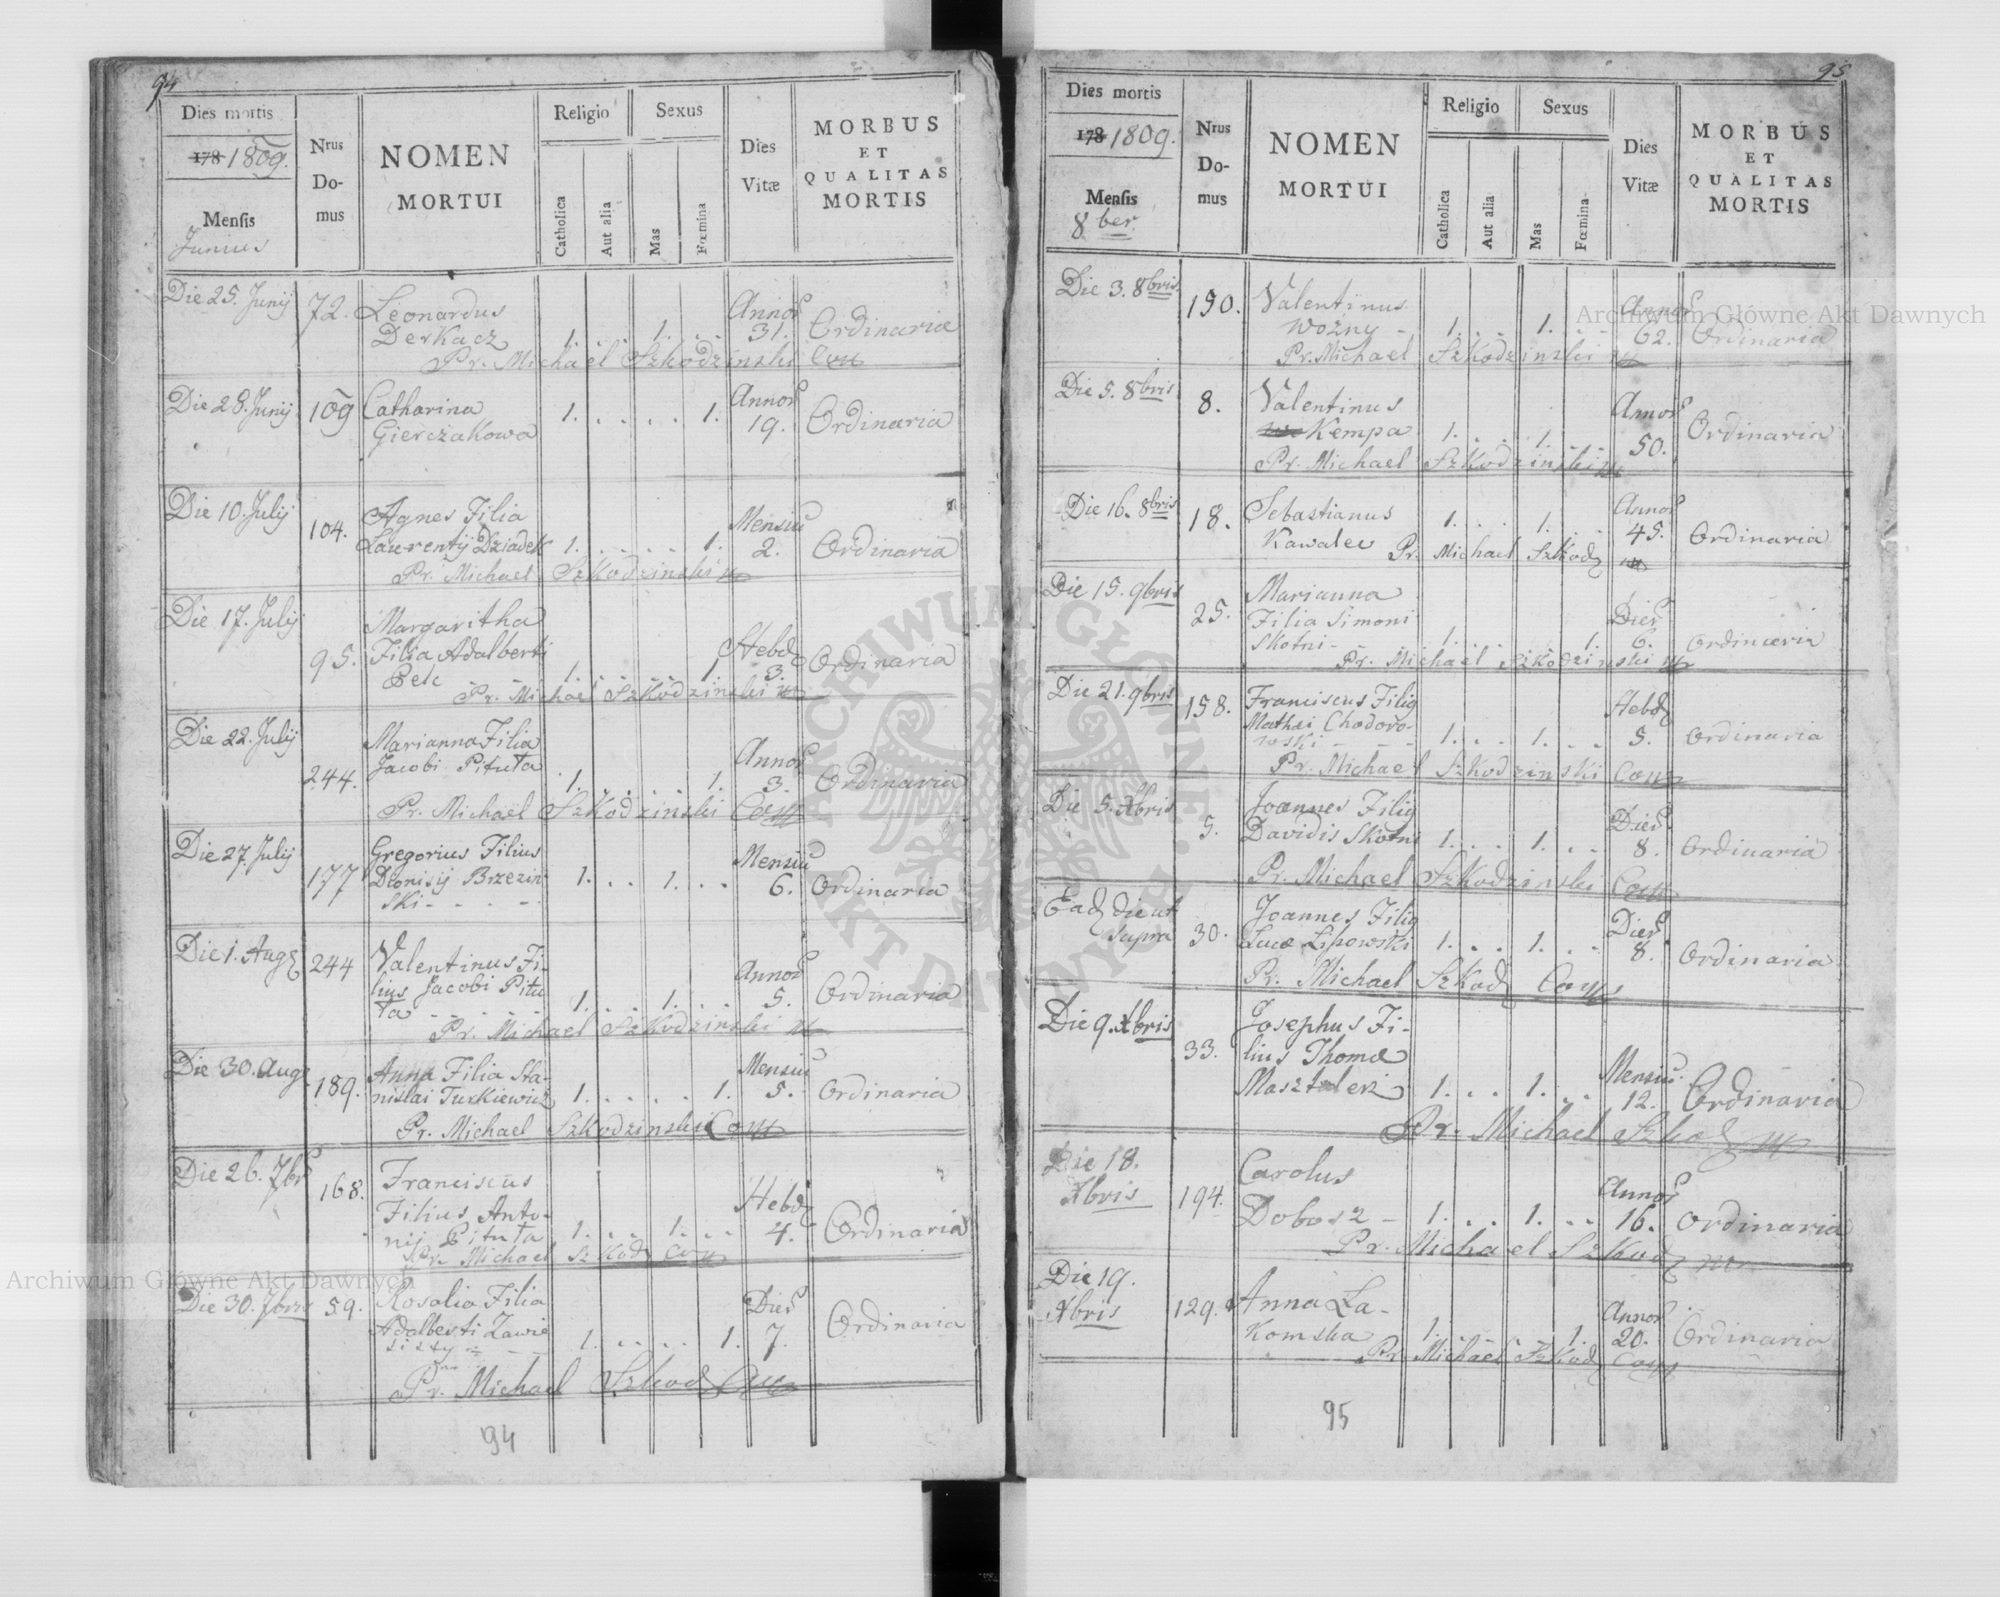 94
Dies mortis
178 1809.
Mensis
Junius
Nrus
Do-
mus
NOMEN
MORTUI
Religio
Catholica
Aut alia
Sexus
Mas
Fœmina
Dies
Vitæ
MORBUS
ET
QUALITAS
MORTIS
Die 25. Junij 72. Leonardus Annor
Derkacz 1. . . 1. . . 31. Ordinaria
Pr. Michael Szkodzinski
Die 28. Junij 109 Catharina 1. . . . . 1. Annor
Gierczakowa 19. Ordinaria
Die 10. Julij 104. Agnes Filia Mensiu
Laurentij Dziadek 1. . . . . 1. 2. Ordinaria
Pr. Michael Szkodzinski
Die 17. Julij 95. Margaritha
Filia Adalberti Hebd
Pelc 1. . . . . 1. 3. Ordinaria
Pr. Michael Szkodzinski
Die 22. Julij 244. Marianna Filia
Jacobi Pituła 1. . . . . 1. Annor 3. Ordinaria
Pr. Michael Szkodzinski
Die 27. Julij 177 Gregorius Filius Mensiu
Dionisij Brzezin 1. . . 1. . . 6. Ordinaria
ski - - - -
Die 1. Aug 244 Valentinus Fi-
lius Jacobi Pitu Annor
ła 1. . . 1. . . 5. Ordinaria
Pr. Michael Szkodzinski
Die 30. Aug 189. Anna Filia Sta- Mensiu
nislai Turkiewicz 1. . . . . 1. 5. Ordinaria
Pr. Michael Szkodzinski
Die 26. 7br 168. Franciscus
Filius Anto- Hebd
nij Pituła 1. . . 1. . . 4. Ordinaria
Pr. Michael Szkod
Die 30. 7bris 59. Rosalia Filia Dier
Adalberti Zawie 1. . . . . 1. 7. Ordinaria
Pr. Michael Szkod
94
95
Dies mortis
178 1809.
Mensis
8ber
Nrus
Do-
mus
NOMEN
MORTUI
Religio
Catholica
Aut alia
Sexus
Mas
Fœmina
Dies
Vitæ
MORBUS
ET
QUALITAS
MORTIS
Die 3. 8bris 190. Valentinus Annor
Wozny - 1. . . 1. . . 62. Ordinaria
Pr. Michael Szkodzinski
Die 5. 8bris 8. Valentinus Annor
Kempa 1. . . 1. . . 50. Ordinaria
Pr. Michael Szkodzinski
Die 16. 8bris 18. Sebastianus 1. . . 1. . . Annor
Kawalec 45. Ordinaria
Pr. Michael Szkod
Die 15. 9bris 25. Marianna
Filia Simoni Dier
Skotni - 1. . . . . 1. 6. Ordinaria
Pr. Michael Szkodzinski
Die 21. 9bris 158. Franciscus Filig Hebd
Mathei Chodoro-
wski - - - 1. . . 1. . . 5. Ordinaria
Pr. Michael Szkodzinski
Die 5. Xbris 5. Joannes Filig Dier
Davidis Skotni 1. . . 1. . . 8. Ordinaria
Pr. Michael Szkodzinski
Ead die ut 30. Joannes Filig Dier
supra Lucæ Lipowski 1. . . 1. . . 8. Ordinaria
Pr. Michael Szkod
Die 9. Xbris 33. Josephus Fi-
lius Thomæ Mensiu
Masztalerz 1. . . 1. . . 12. Ordinaria
Pr. Michael Szkod
Die 18. Carolus Annor
Xbris 194. Dobosz - 1. . . 1. . . 16. Ordinaria
Pr. Michael Szkod
Die 19. Anna La- Annor
Xbris 129. komska 1. . . . . 1. 20. Ordinaria
Pr. Michael Szkod
95
Archiwum Główne Akt Dawnych
Archiwum Główne Akt Dawnych
ARCHIWUM GŁÓWNE AKT DAWNYCH